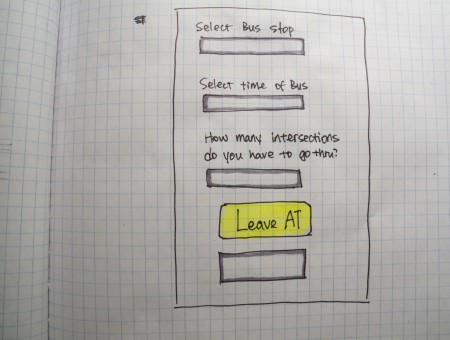 Select Bus stop
Select time of Bus
How many intersections
do you have to go thru?
Leave AT